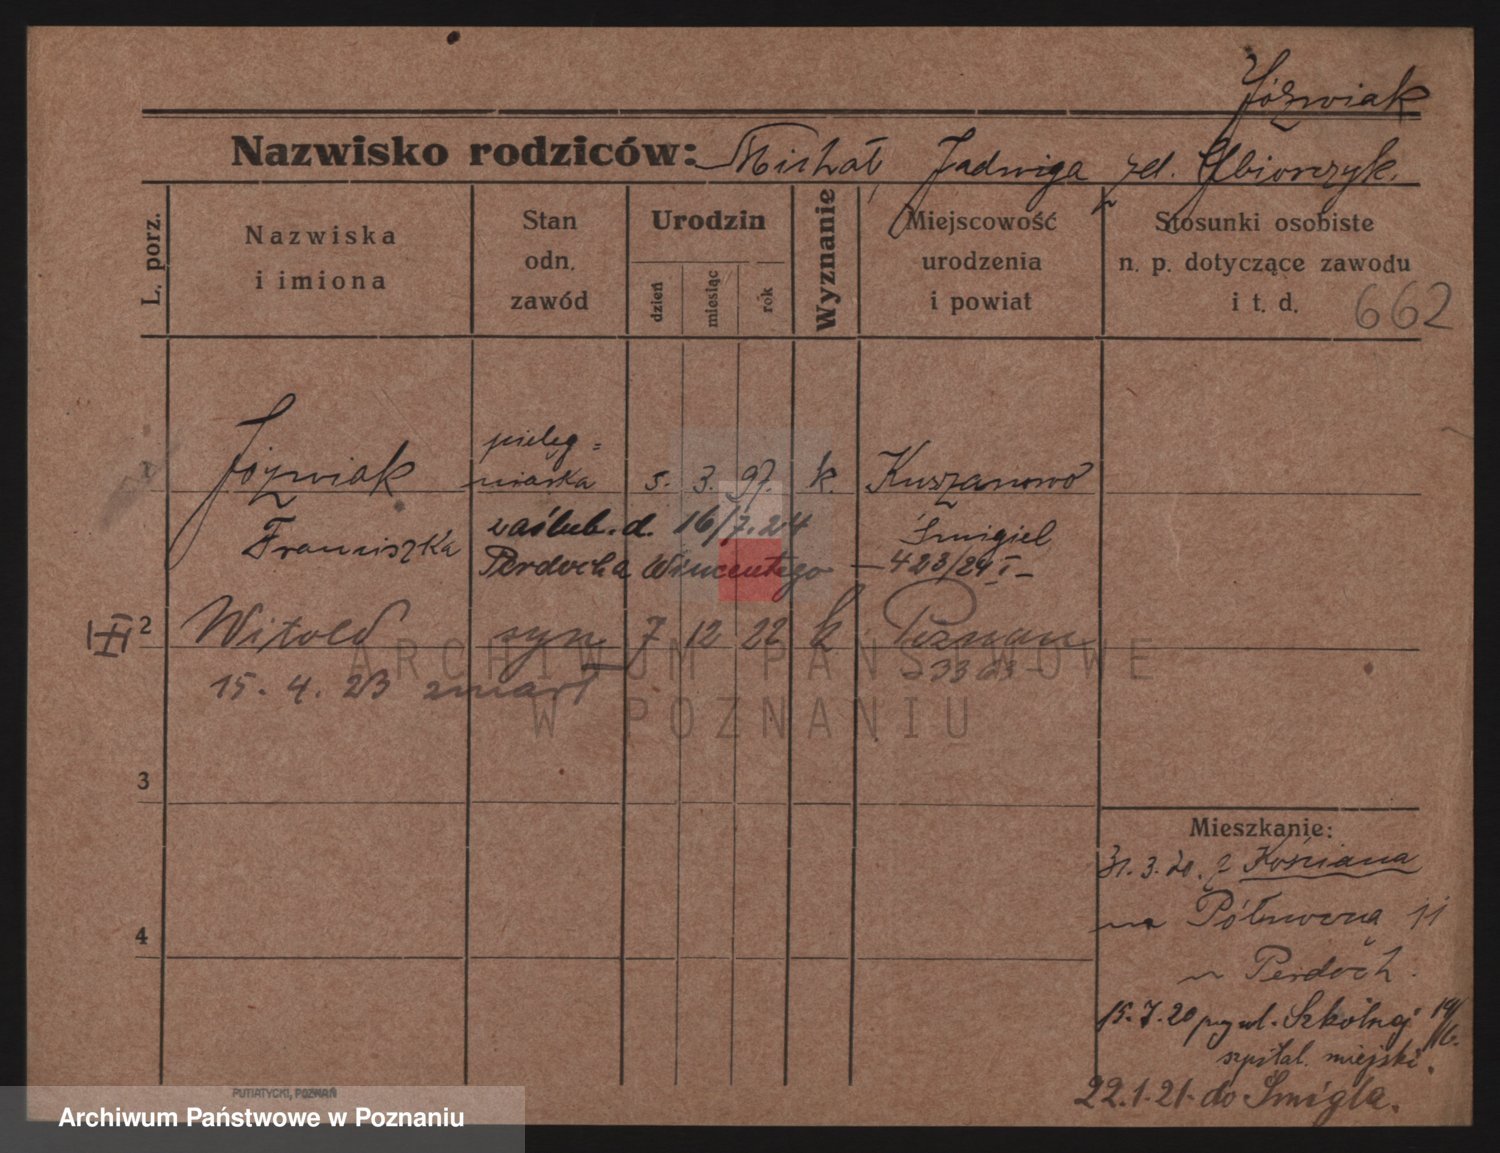 Jóźwiak
Nazwisko rodziców: Michał, Jadwiga zd. Zbiorczyk.
L. porz.
Nazwiska i imiona
Stan odn. zawód
Urodzin
dzień
miesiąc
rok
Wyznanie
Miejscowość urodzenia i powiat
Stosunki osobiste n. p. dotyczące zawodu i t. d.
662
pielęg=
Jóźwiak niarka 5. 3. 97. k. Kuszanowo
Franciszka zaślub. d. 16/7.24 Śmigiel
Perdocha Wincentego — 423/24 I —
2 Witold syn 7 12 22 k Poznań
15. 4. 23 zmarł
3
4
Mieszkanie:
31. 3. 20. z Kościana
na Półwozna 11
u Perdoch.
15. 7. 20 przy ul. Szkolnej
szpital. miejski.
22. 1. 21. do Śmigla.
ARCHIWUM PAŃSTWOWE
W POZNANIU
PUTIATYCKI, POZNAŃ
Archiwum Państwowe w Poznaniu